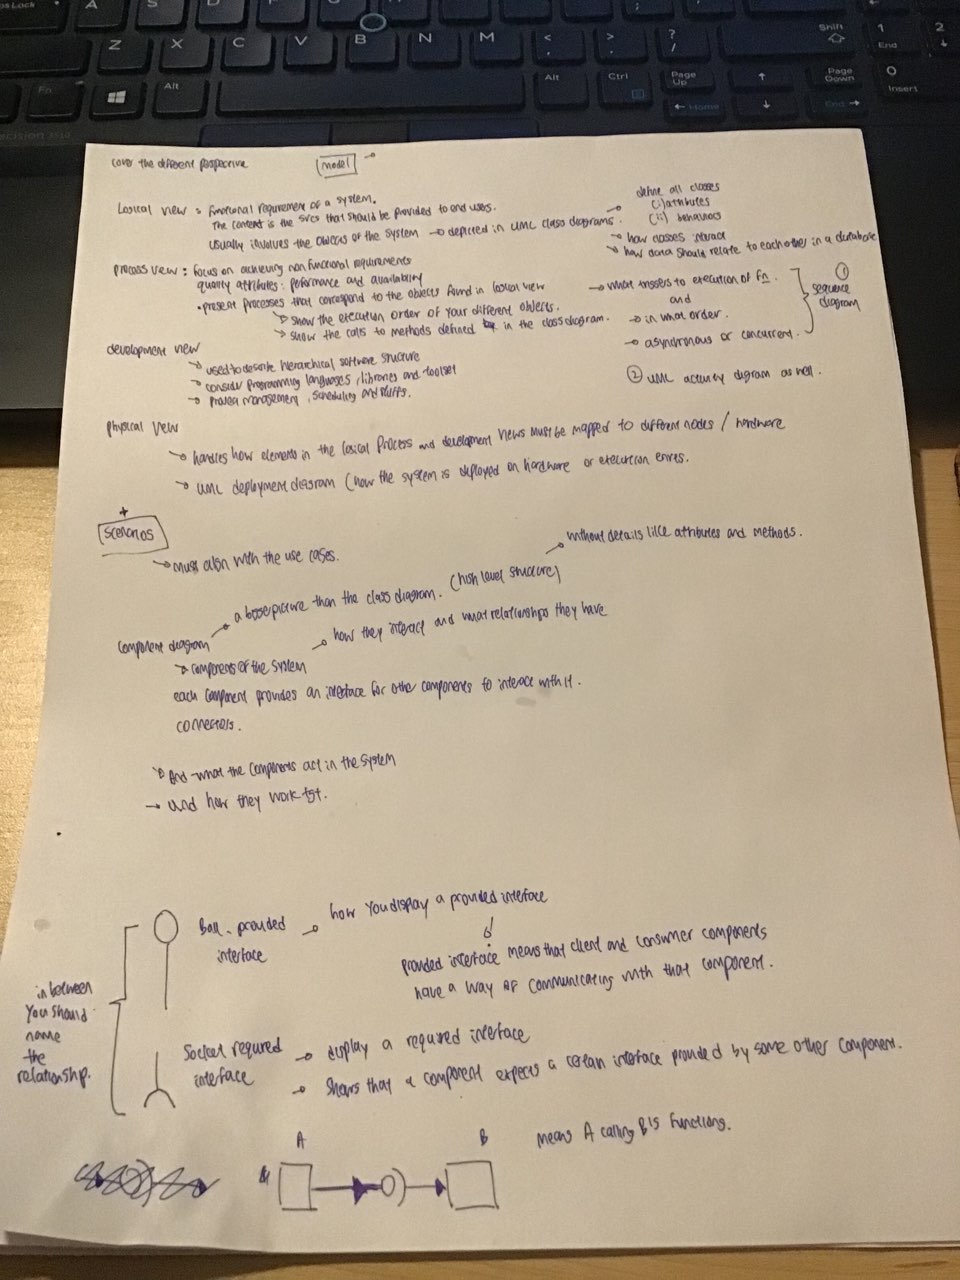 S Lock
A
S
D
F
Z
X
C
V
B
N
M
<
,
>
.
?
/
Shift
1
End
2
Fn
Alt
Alt
Ctrl
Page
Up
Page
Down
0
Insert
Home
End
cover the different perspective
model
Logical view : Functional requirement of a system.
The content is the svcs that should be provided to end users.
Usually involves the objects of the system → depicted in UML class diagrams.
define all classes
(i) attributes
(ii) behaviors
→ how classes interact
→ how data should relate to each other in a database
process view : focus on achieving non functional requirements
quality attributes : performance and availability
• present processes that correspond to the objects found in logical view
→ show the execution order of your different objects.
→ show the calls to methods defined in the class diagram.
→ what triggers to execution of fn.
and
→ in what order.
→ asynchronous or concurrent.
① sequence
diagram
② UML activity digram as well.
development view
→ used to describe hierarchical software structure
→ consider programming languages, libraries and toolset
→ project management, scheduling and stuffs.
physical view
→ handles how elements in the logical process and development views must be mapped to different nodes / hardware
→ UML deployment diagram (how the system is deployed on hardware or execution
+
scenarios
→ must align with the use cases.
component diagram
→ a picture than the class diagram. (high level structure)
→ without details like attributes and methods.
→ components of the system
→ how they interact and what relationships they have
each component provides an interface for other components to interact with it.
connectors.
→ And what the components act in the system
→ and how they work tgt.
in between
you should
name
the
relationship.
Ball - provided
interface
→ how you display a provided interface
provided interface means that client and consumer components
have a way of communicating with that component.
Socket required
interface
→ display a required interface
→ shows that a component expects a certain interface provided by some other component.
A
B
means A calling B's functions.